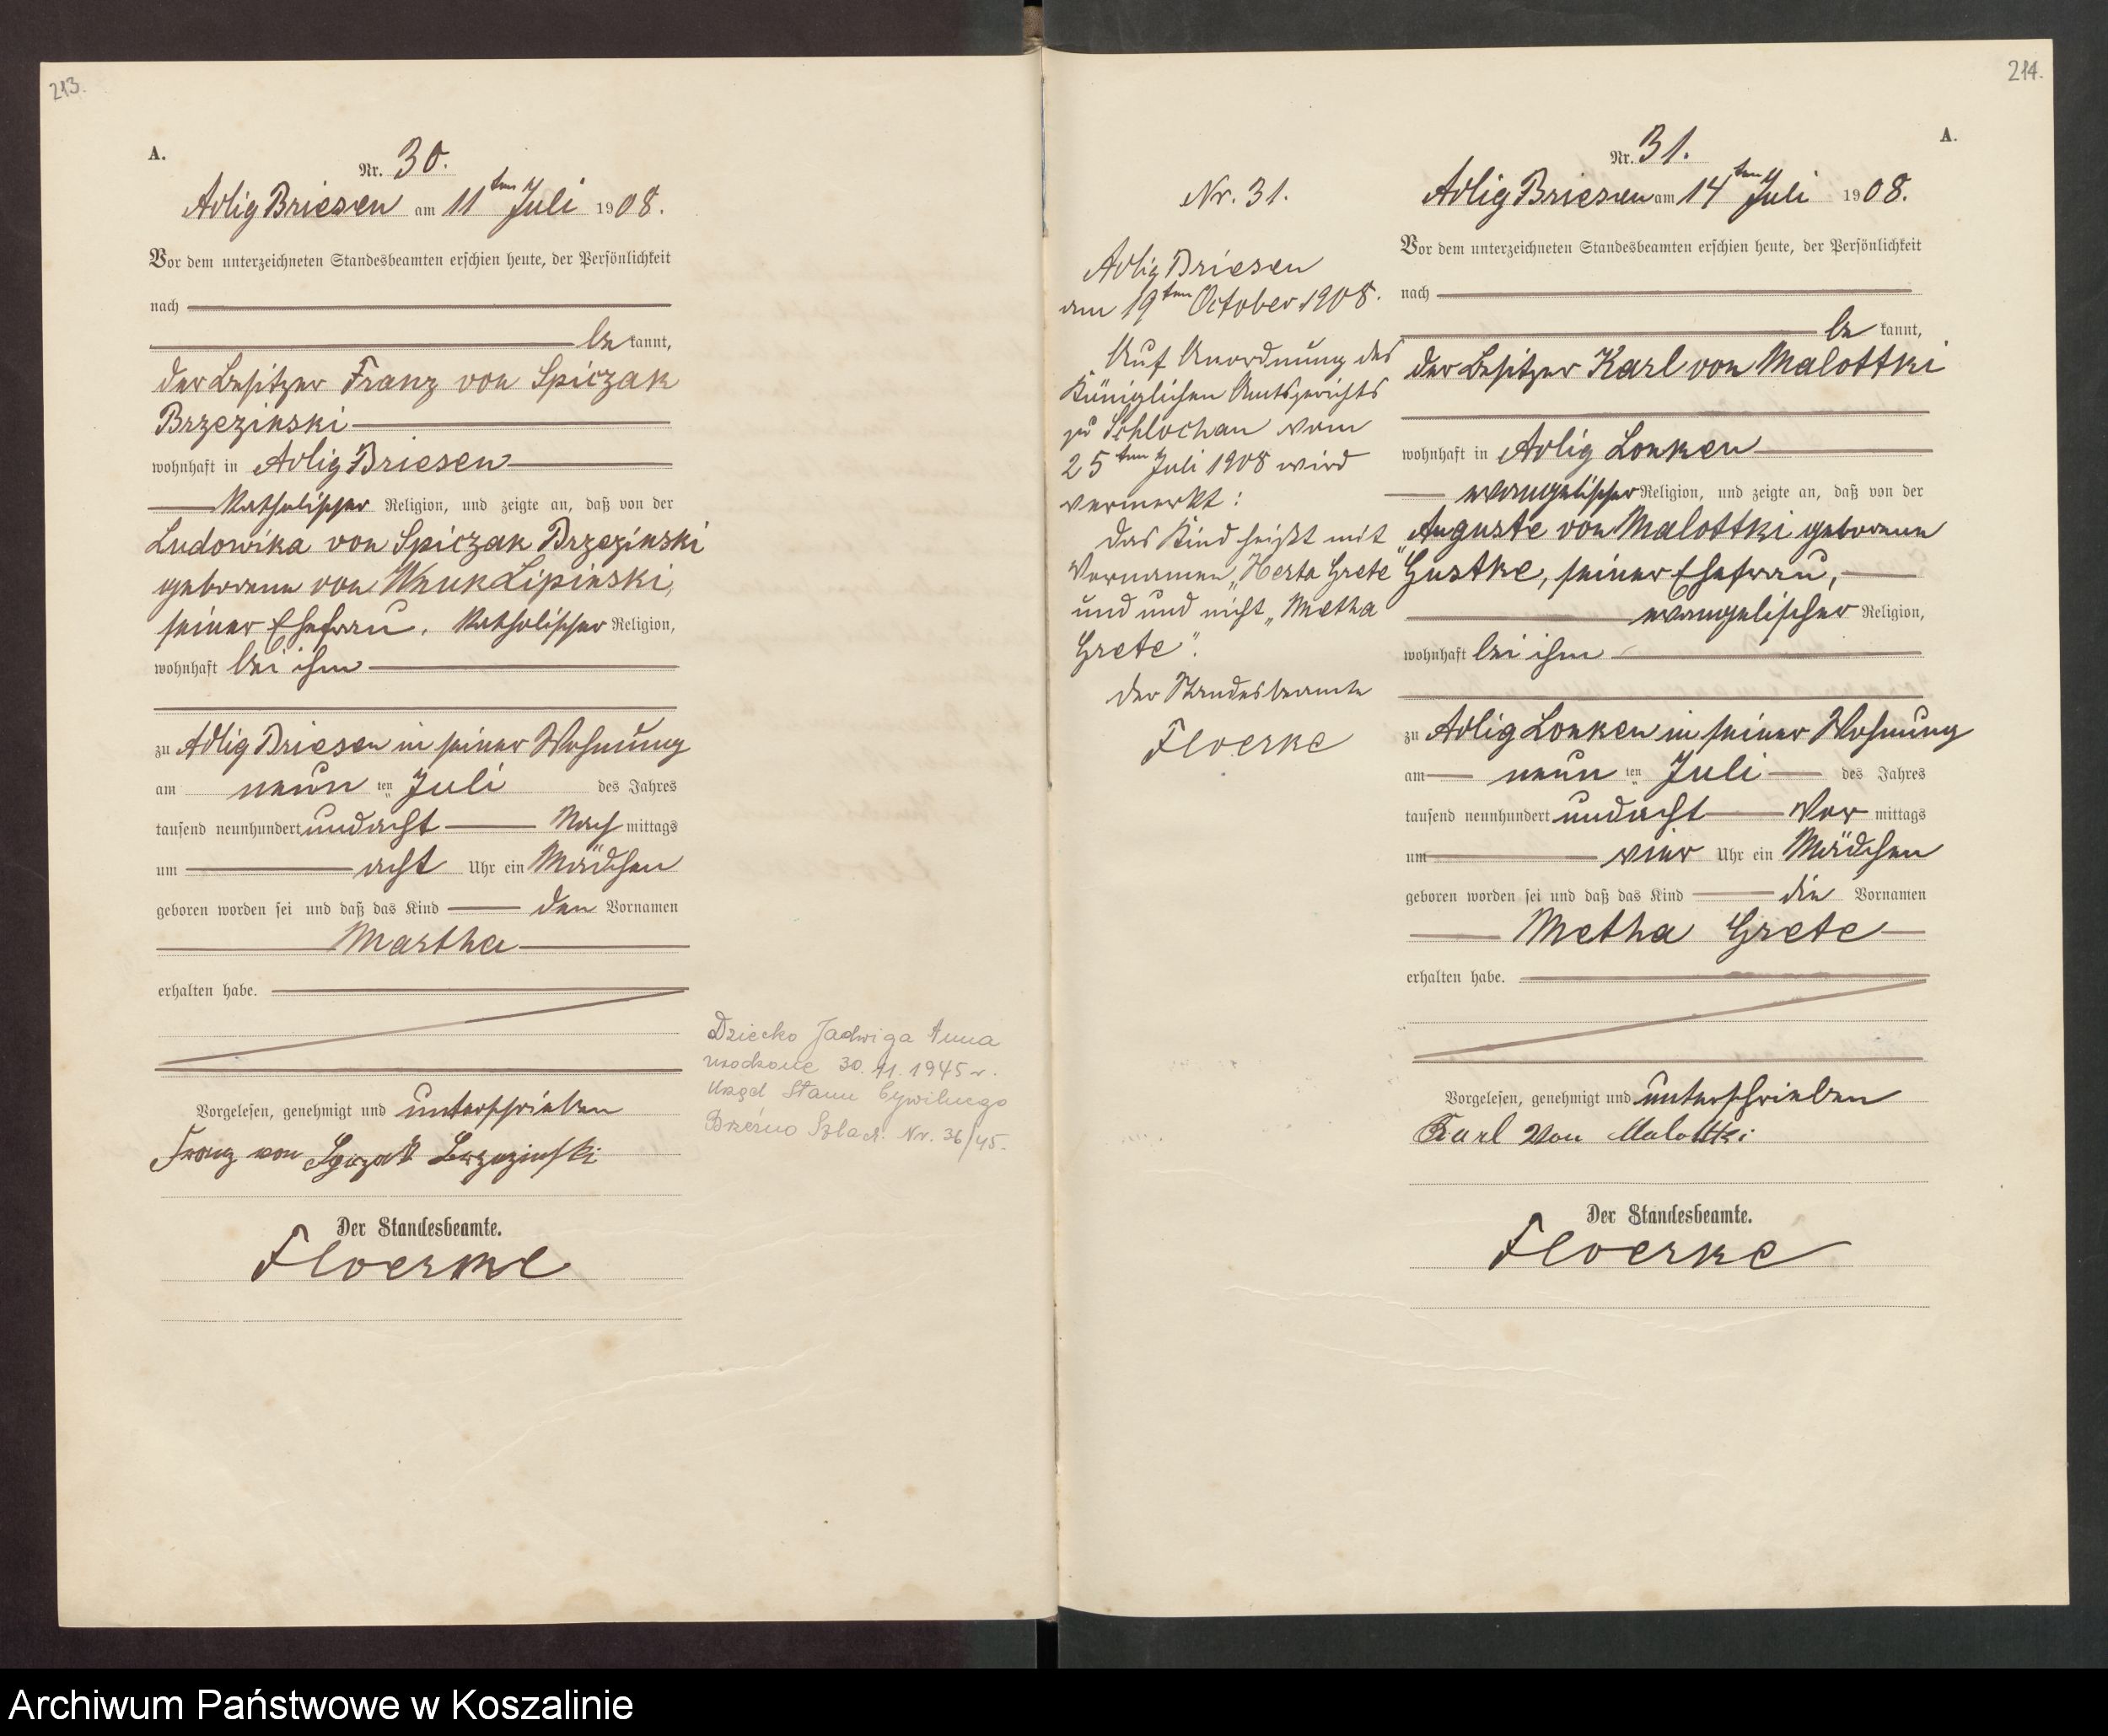 213.
A.
Nr. 30.
Adlig Briesen am 11ten Juli 1908.
Vor dem unterzeichneten Standesbeamten erschien heute, der Persönlichkeit
nach
be kannt,
der Besitzer Franz von Spiczak
Brzezinski
wohnhaft in Adlig Briesen
katholischer Religion, und zeigte an, daß von der
Ludowika von Spiczak Brzezinski
geborene von Wnuk Lipinski,
seiner Ehefrau, katholischer Religion,
wohnhaft bei ihm
zu Adlig Briesen in seiner Wohnung
am neun ten Juli des Jahres
tausend neunhundert und acht Nach mittags
um acht Uhr ein Mädchen
geboren worden sei und daß das Kind den Vornamen
Martha
erhalten habe.
Vorgelesen, genehmigt und unterschrieben
Franz von Spiczak Brzezinski
Der Standesbeamte.
Floerke
Dziecko Jadwiga Anna
urodzone 30.11.1945 r.
Urząd Stanu Cywilnego
Brzeźno Szlach. Nr. 36/45.
214.
A.
Nr. 31.
Adlig Briesen
am 19ten October 1908.
Auf Anordnung des
Königlichen Amtsgerichts
zu Schlochau vom
25ten Juli 1908 wird
vermerkt:
Das Kind heißt mit
Vornamen „Herta Grete"
und und nicht „Metha
Grete".
Der Standesbeamte
Floerke
Nr. 31.
Adlig Briesen am 14ten Juli 1908.
Vor dem unterzeichneten Standesbeamten erschien heute, der Persönlichkeit
nach
be kannt,
der Besitzer Karl von Malottki
wohnhaft in Adlig Lonken
evangelischer Religion, und zeigte an, daß von der
Auguste von Malottki geborene
Gustke, seiner Ehefrau,
evangelischer Religion,
wohnhaft bei ihm
zu Adlig Lonken in seiner Wohnung
am neun ten Juli des Jahres
tausend neunhundert und acht Vor mittags
um vier Uhr ein Mädchen
geboren worden sei und daß das Kind die Vornamen
Metha Grete
erhalten habe.
Vorgelesen, genehmigt und unterschrieben
Karl von Malottki
Der Standesbeamte.
Floerke
Archiwum Państwowe w Koszalinie